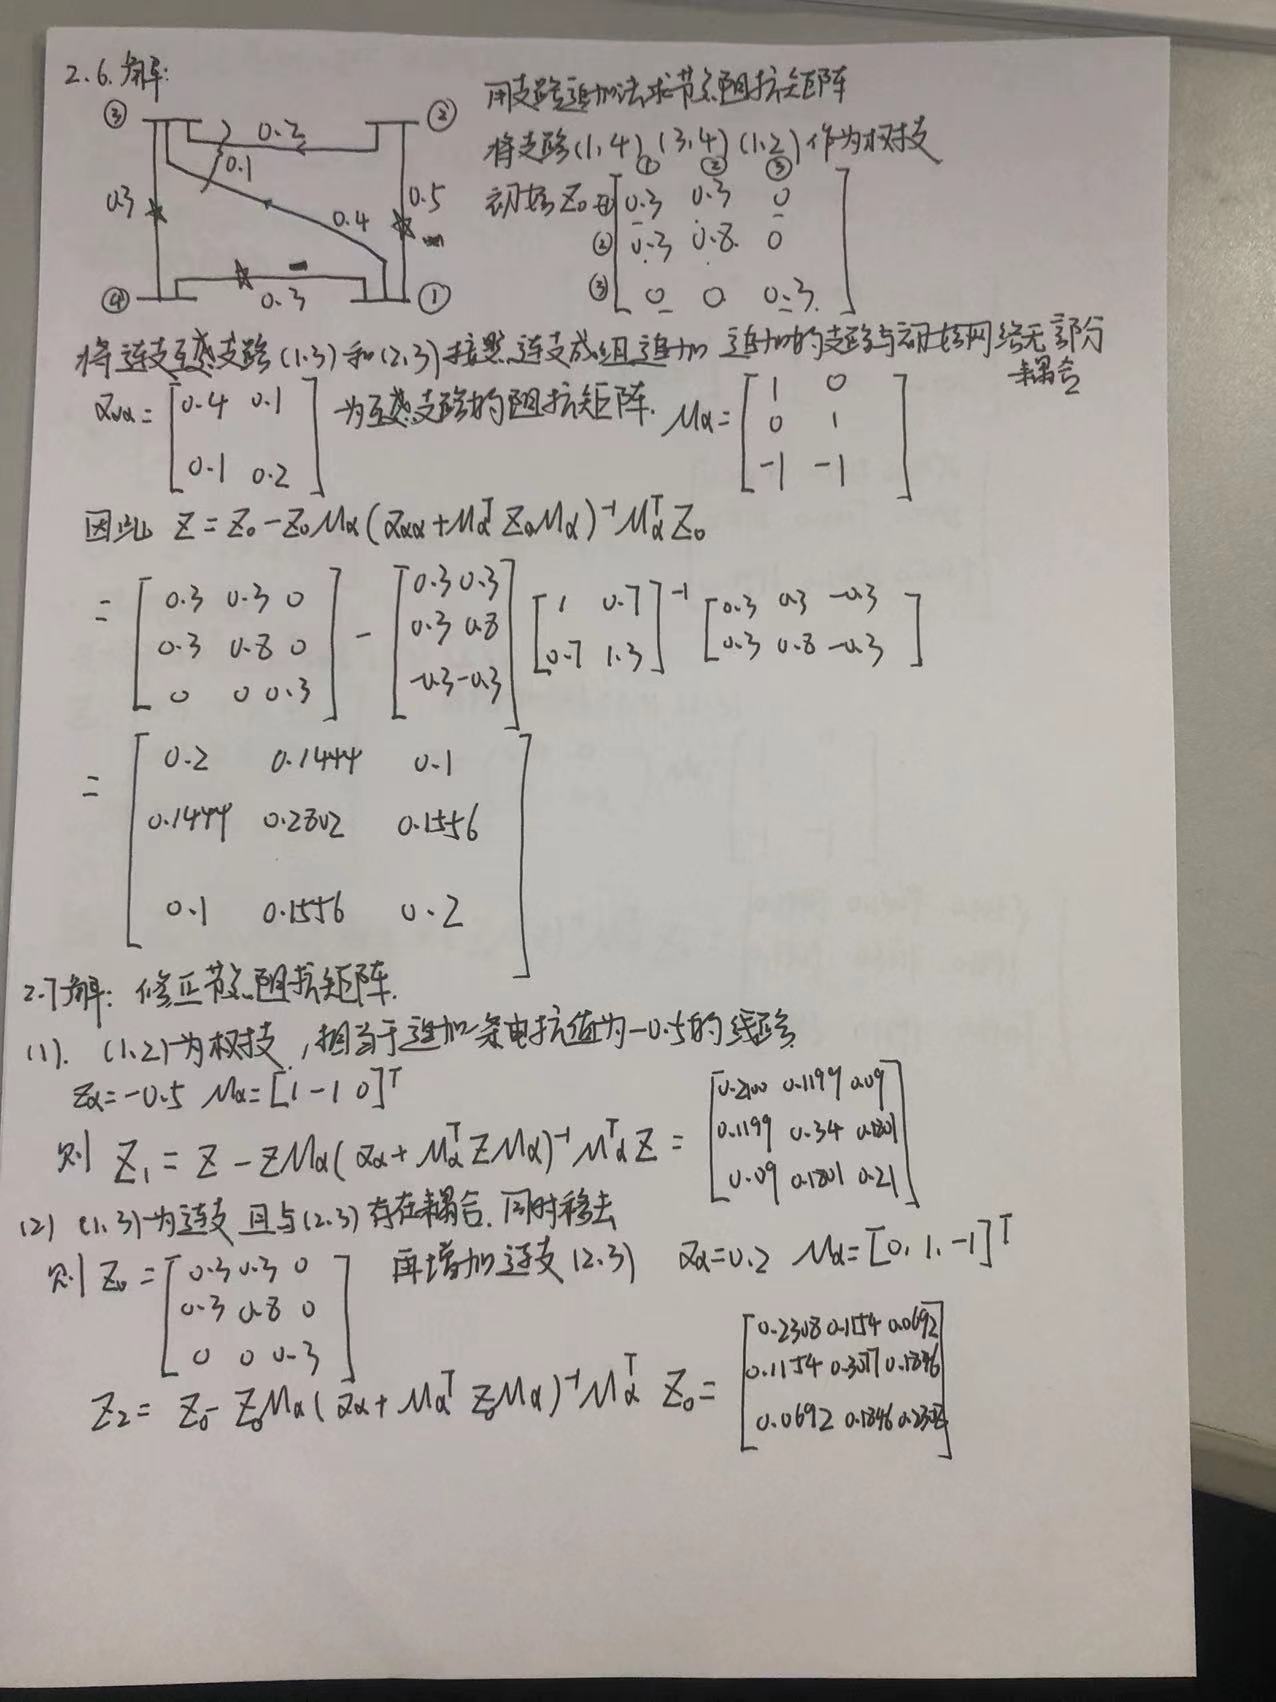 2.6.解:
③ 0.2 ②
0.1
0.3 0.4 0.5
④ 0.3 ①
用支路追加法求节点阻抗矩阵
将支路(1,4)(3,4)(1,2)作为树枝
① ② ③
初始Z₀= ① [0.3 0.3 0
② 0.3 0.8 0
③ 0 0 0.3]
将连支互感支路(1,3)和(2,3)按照连支成组追加 追加的支路与初始网络无部分
耦合
Zαα= [0.4 0.1
0.1 0.2] 为互感支路的阻抗矩阵. Mα= [1 0
0 1
-1 -1]
因此 Z=Z₀-Z₀Mα(Zαα+MαᵀZ₀Mα)⁻¹MαᵀZ₀
= [0.3 0.3 0
0.3 0.8 0
0 0 0.3] - [0.3 0.3
0.3 0.8
-0.3 -0.3] [1 0.7
0.7 1.3]⁻¹ [0.3 0.3 -0.3
0.3 0.8 -0.3]
= [0.2 0.1444 0.1
0.1444 0.2802 0.1556
0.1 0.1556 0.2]
2.7解: 修正节点阻抗矩阵.
(1). (1,2)为树枝, 相当于追加一条电抗值为-0.5的线路
Zα=-0.5 Mα=[1 -1 0]ᵀ
则 Z₁=Z-ZMα(Zα+MαᵀZMα)⁻¹MαᵀZ= [0.2100 0.1199 0.09
0.1199 0.34 0.1801
0.09 0.1801 0.21]
(2) (1,3)为连支 且与(2,3)存在耦合. 同时移去
则Z₀= [0.3 0.3 0
0.3 0.8 0
0 0 0.3] 再增加连支(2,3) Zα=0.2 Mα=[0,1,-1]ᵀ
Z₂= Z₀-Z₀Mα(Zα+Mαᵀ Z₀Mα)⁻¹Mαᵀ Z₀= [0.2308 0.1154 0.0692
0.1154 0.3077 0.1846
0.0692 0.1846 0.2308]